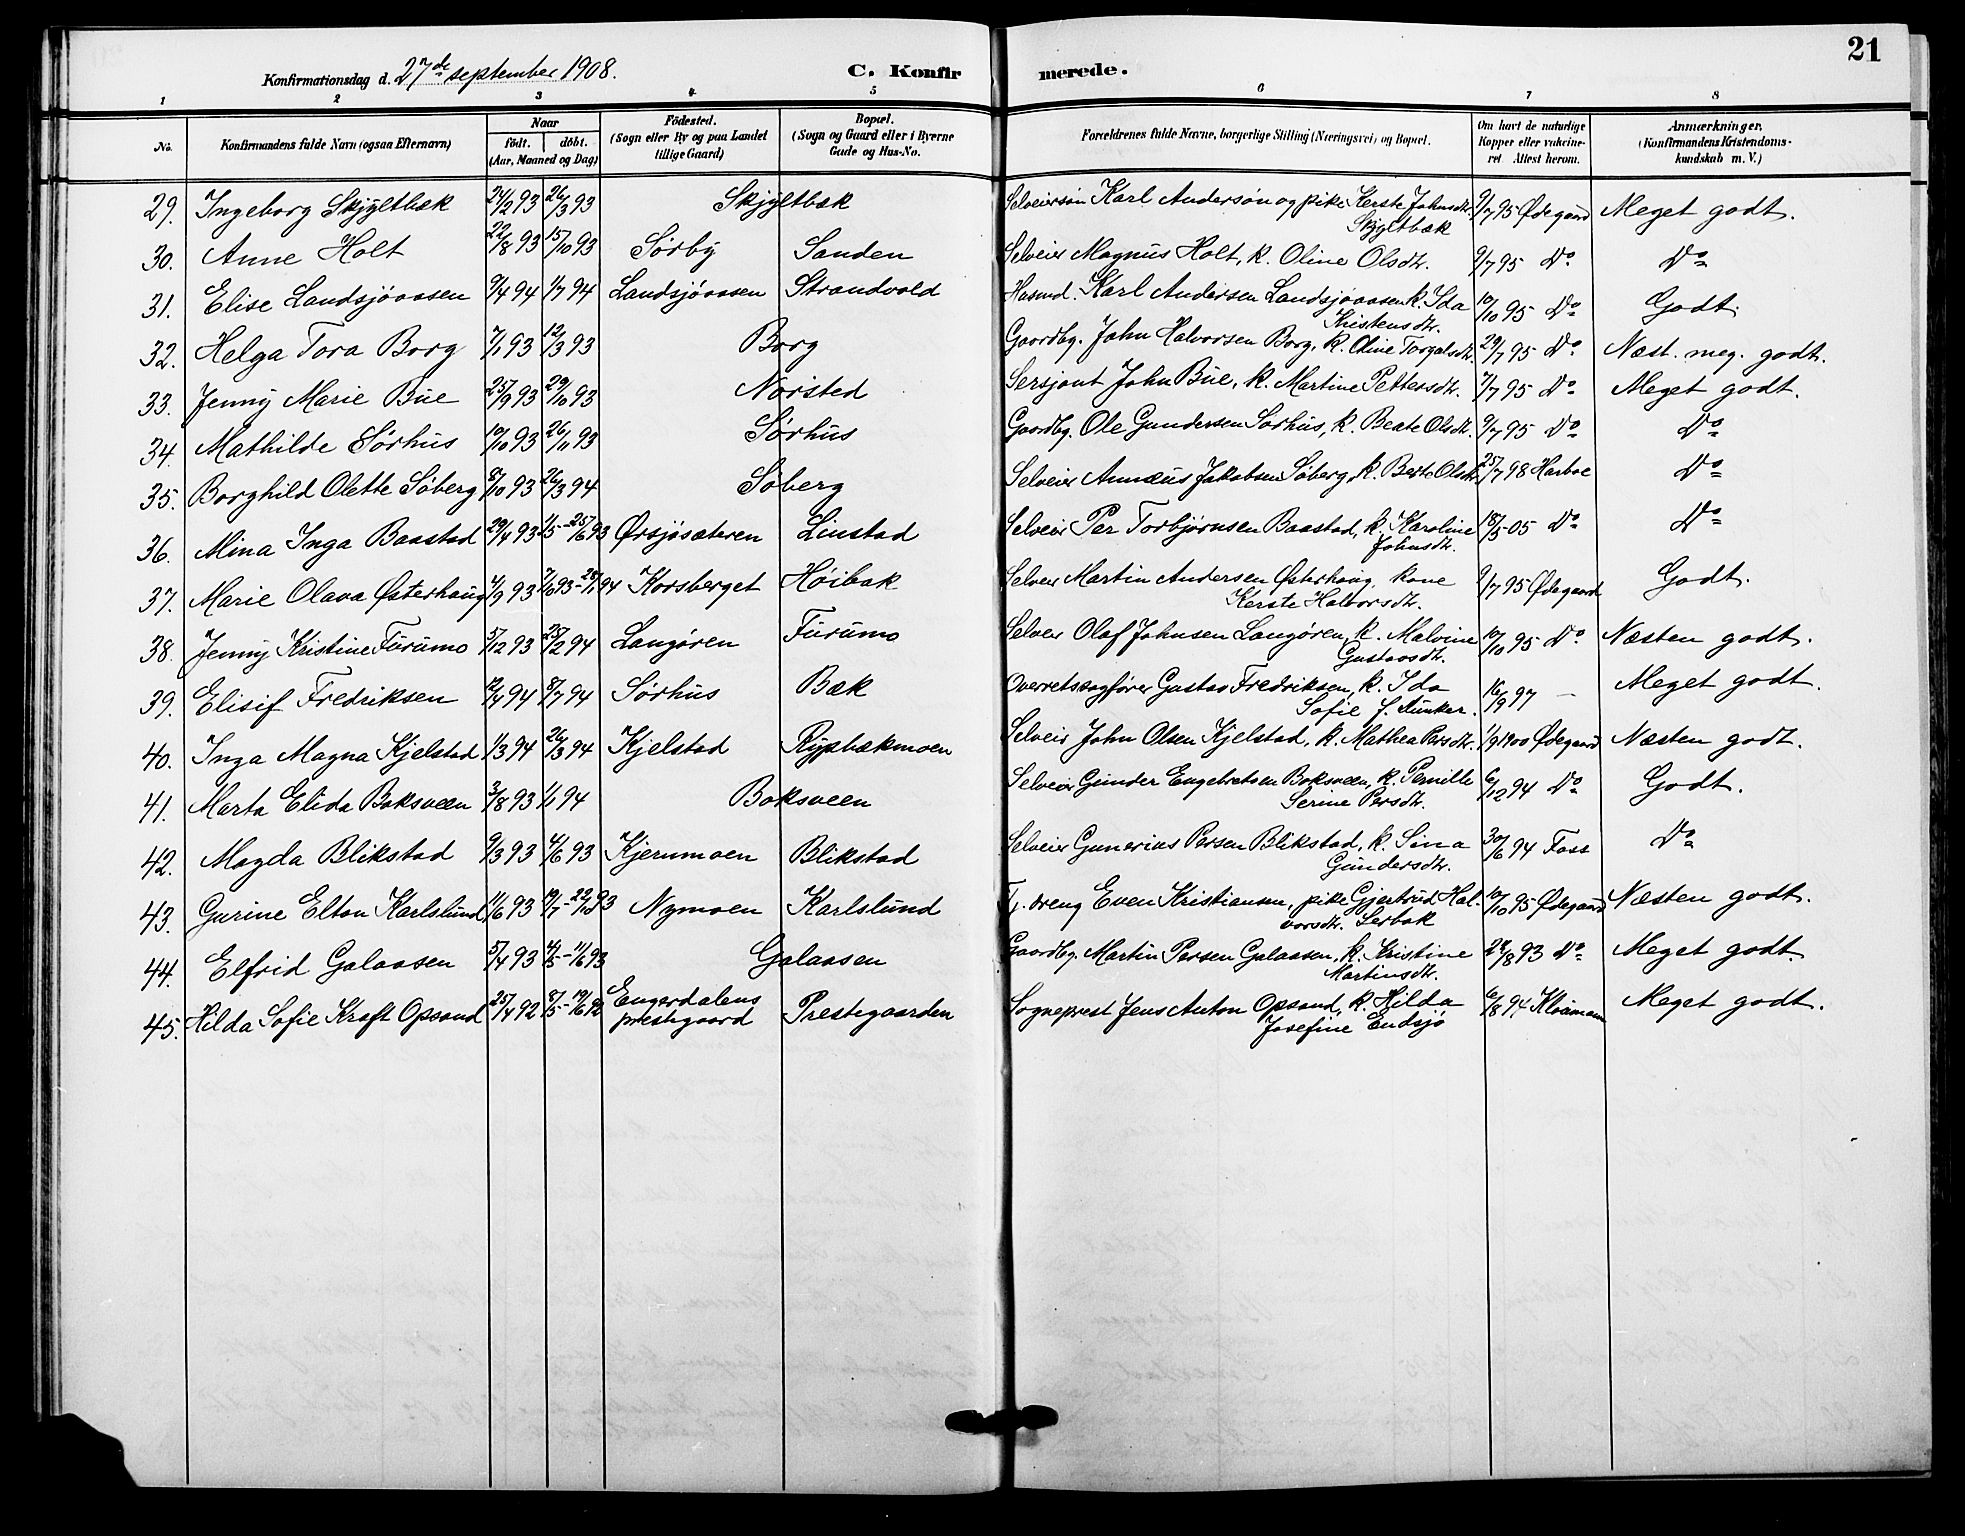 21
Konfirmationsdag d. 27de september 1908. C. Konfir merede.
1 2 3 4 5 6 7 8
No. Konfirmandens fulde Navn (ogsaa Efternavn) Naar födt. döbt. (Aar, Maaned og Dag) Födested. (Sogn eller By og paa Landet tillige Gaard) Bopæl. (Sogn og Gaard eller i Byerne Gade og Hus-No. Forældrenes fulde Navne, borgerlige Stilling (Næringsvei) og Bopæl. Om havt de naturlige Kopper eller vakcineret Attest herom. Anmærkninger. (Konfirmandens Kristendomskundskab m. V.)
29. Ingeborg Skjyltbæk 24/2 93 26/3 93 Skjyltbæk Selveiersøn Karl Andersøn og pike Kerste Johnsdtr. 9/7 95 Ødegaard Meget godt.
Skjyltbæk
30. Anne Holt 22/8 93 15/10 93 Sørby Sanden Selveier Magnus Holt, k. Oline Olsdtr. 9/7 95 Do Do
31. Elise Landsjøaasen 9/4 94 1/7 94 Landsjøaasen Strandvold Husmd. Karl Andersen Landsjøaasen k. Ida 10/10 95 Do Godt.
Kristensdtr.
32. Helga Tora Borg 7/1 93 12/3 93 Borg Gaardbg. John Halvorsen Borg, k. Oline Torgalsdtr. 29/7 95 Do Næst. meg. godt.
33. Jenny Marie Bue 25/9 93 29/10 93 Norsted Sersjant John Bue, k. Martine Pettersdtr. 7/7 95 Do Meget godt.
34. Mathilde Sørhus 10/10 93 26/11 93 Sørhus Gaardbg. Ole Gundersen Sørhus, k. Beate Olsdt. 9/7 95 Do Do
35. Borghild Olette Søberg 8/10 93 26/3 94 Søberg Selveier Annæus Jakobsen Søberg, k. Berte Olsdtr. 25/7 98 Harboe Do
36. Mina Inga Baastad 29/4 93 1/5 - 25/6 93 Ørsjøsæteren Linstad Selveir Per Torbjørnsen Baastad, k. Karoline 18/5-05 Do Do
Johnsdtr.
37. Marie Olava Østerhaug 4/9 93 7/10 93 - 28/1 94 Korsberget Høibak Selveir Martin Andersen Østerhaug, kone 9/7 95 Ødegaard Godt.
Kerste Halvorsdtr.
38. Jenny Kristine Furumo 5/12 93 25/2 94 Langøren Furumo Selveir Olaf Johnsen Langøren, k. Malvine 10/10 95 Do Næsten godt.
Gustavsdtr.
39. Elisif Fredriksen 12/4 94 8/7 94 Sørhus Bæk Overretssagfører Gustav Fredriksen, k. Ida 16/9 97 - Meget godt.
Sofie f. Dunker.
40. Inga Magna Kjelstad 1/3 94 26/3 94 Kjelstad Rypbækmoen Selveir John Olsen Kjelstad, k. Mathea Persdtr. 1/9 1900 Ødegaard Næsten godt.
41. Marta Elida Boksveen 3/8 93 1/1 94 Boksveen Selveier Gunder Engebretsen Boksveen, k. Pernille 6/12 94 Do Godt.
Serine Persdtr.
42. Magda Blikstad 9/3 93 4/6 93 Kjernmoen Blikstad Selveier Gunerius Persen Blikstad, k. Sina 30/6 94 Foss Do
Gundersdtr.
43. Gurine Elton Karlslund 1/6 93 19/7 - 29/10 93 Nymoen Karlslund Tj. dreng Even Kristiansen, pike Gjertrud Hal- 10/10 95 Ødegaard Næsten godt.
vorsdtr. Serbak
44. Elfrid Galaasen 5/4 93 4/5 - 11/6 93 Galaasen Gaardbg. Martin Persen Galaasen, k. Kristine 24/8 93 Do Meget godt
Martinsdtr.
45. Hilda Sofie Kraft Opsand 25/4 92 8/5 - 19/6 92 Engerdalens Prestegaarden Sogneprest Jens Anton Opsand, k. Hilda 6/8 94 Meget godt.
prestegaard Josefine Endsjø